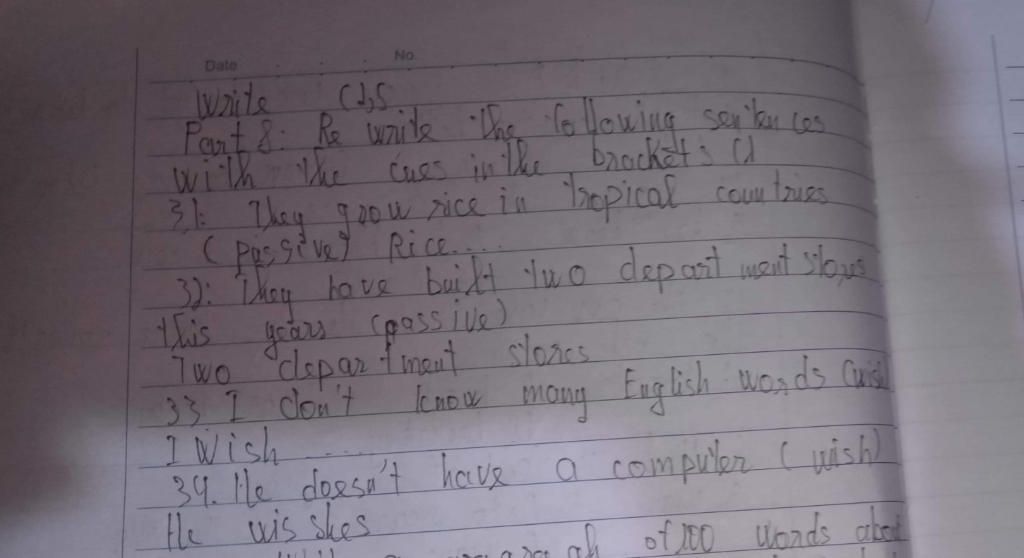 Date No.
Write (2,5
Part 8: Re write the following sentences
with the cues in the brackets (1
31: They grow rice in tropical countries
(passive) Rice....
32: They have built two depart ment stores
this years (passive)
Two depar tment stores
33 I don't know many English words (wish
I Wish ........
34. He doesn't have a computer (wish)
He wisshes
of 100 words about